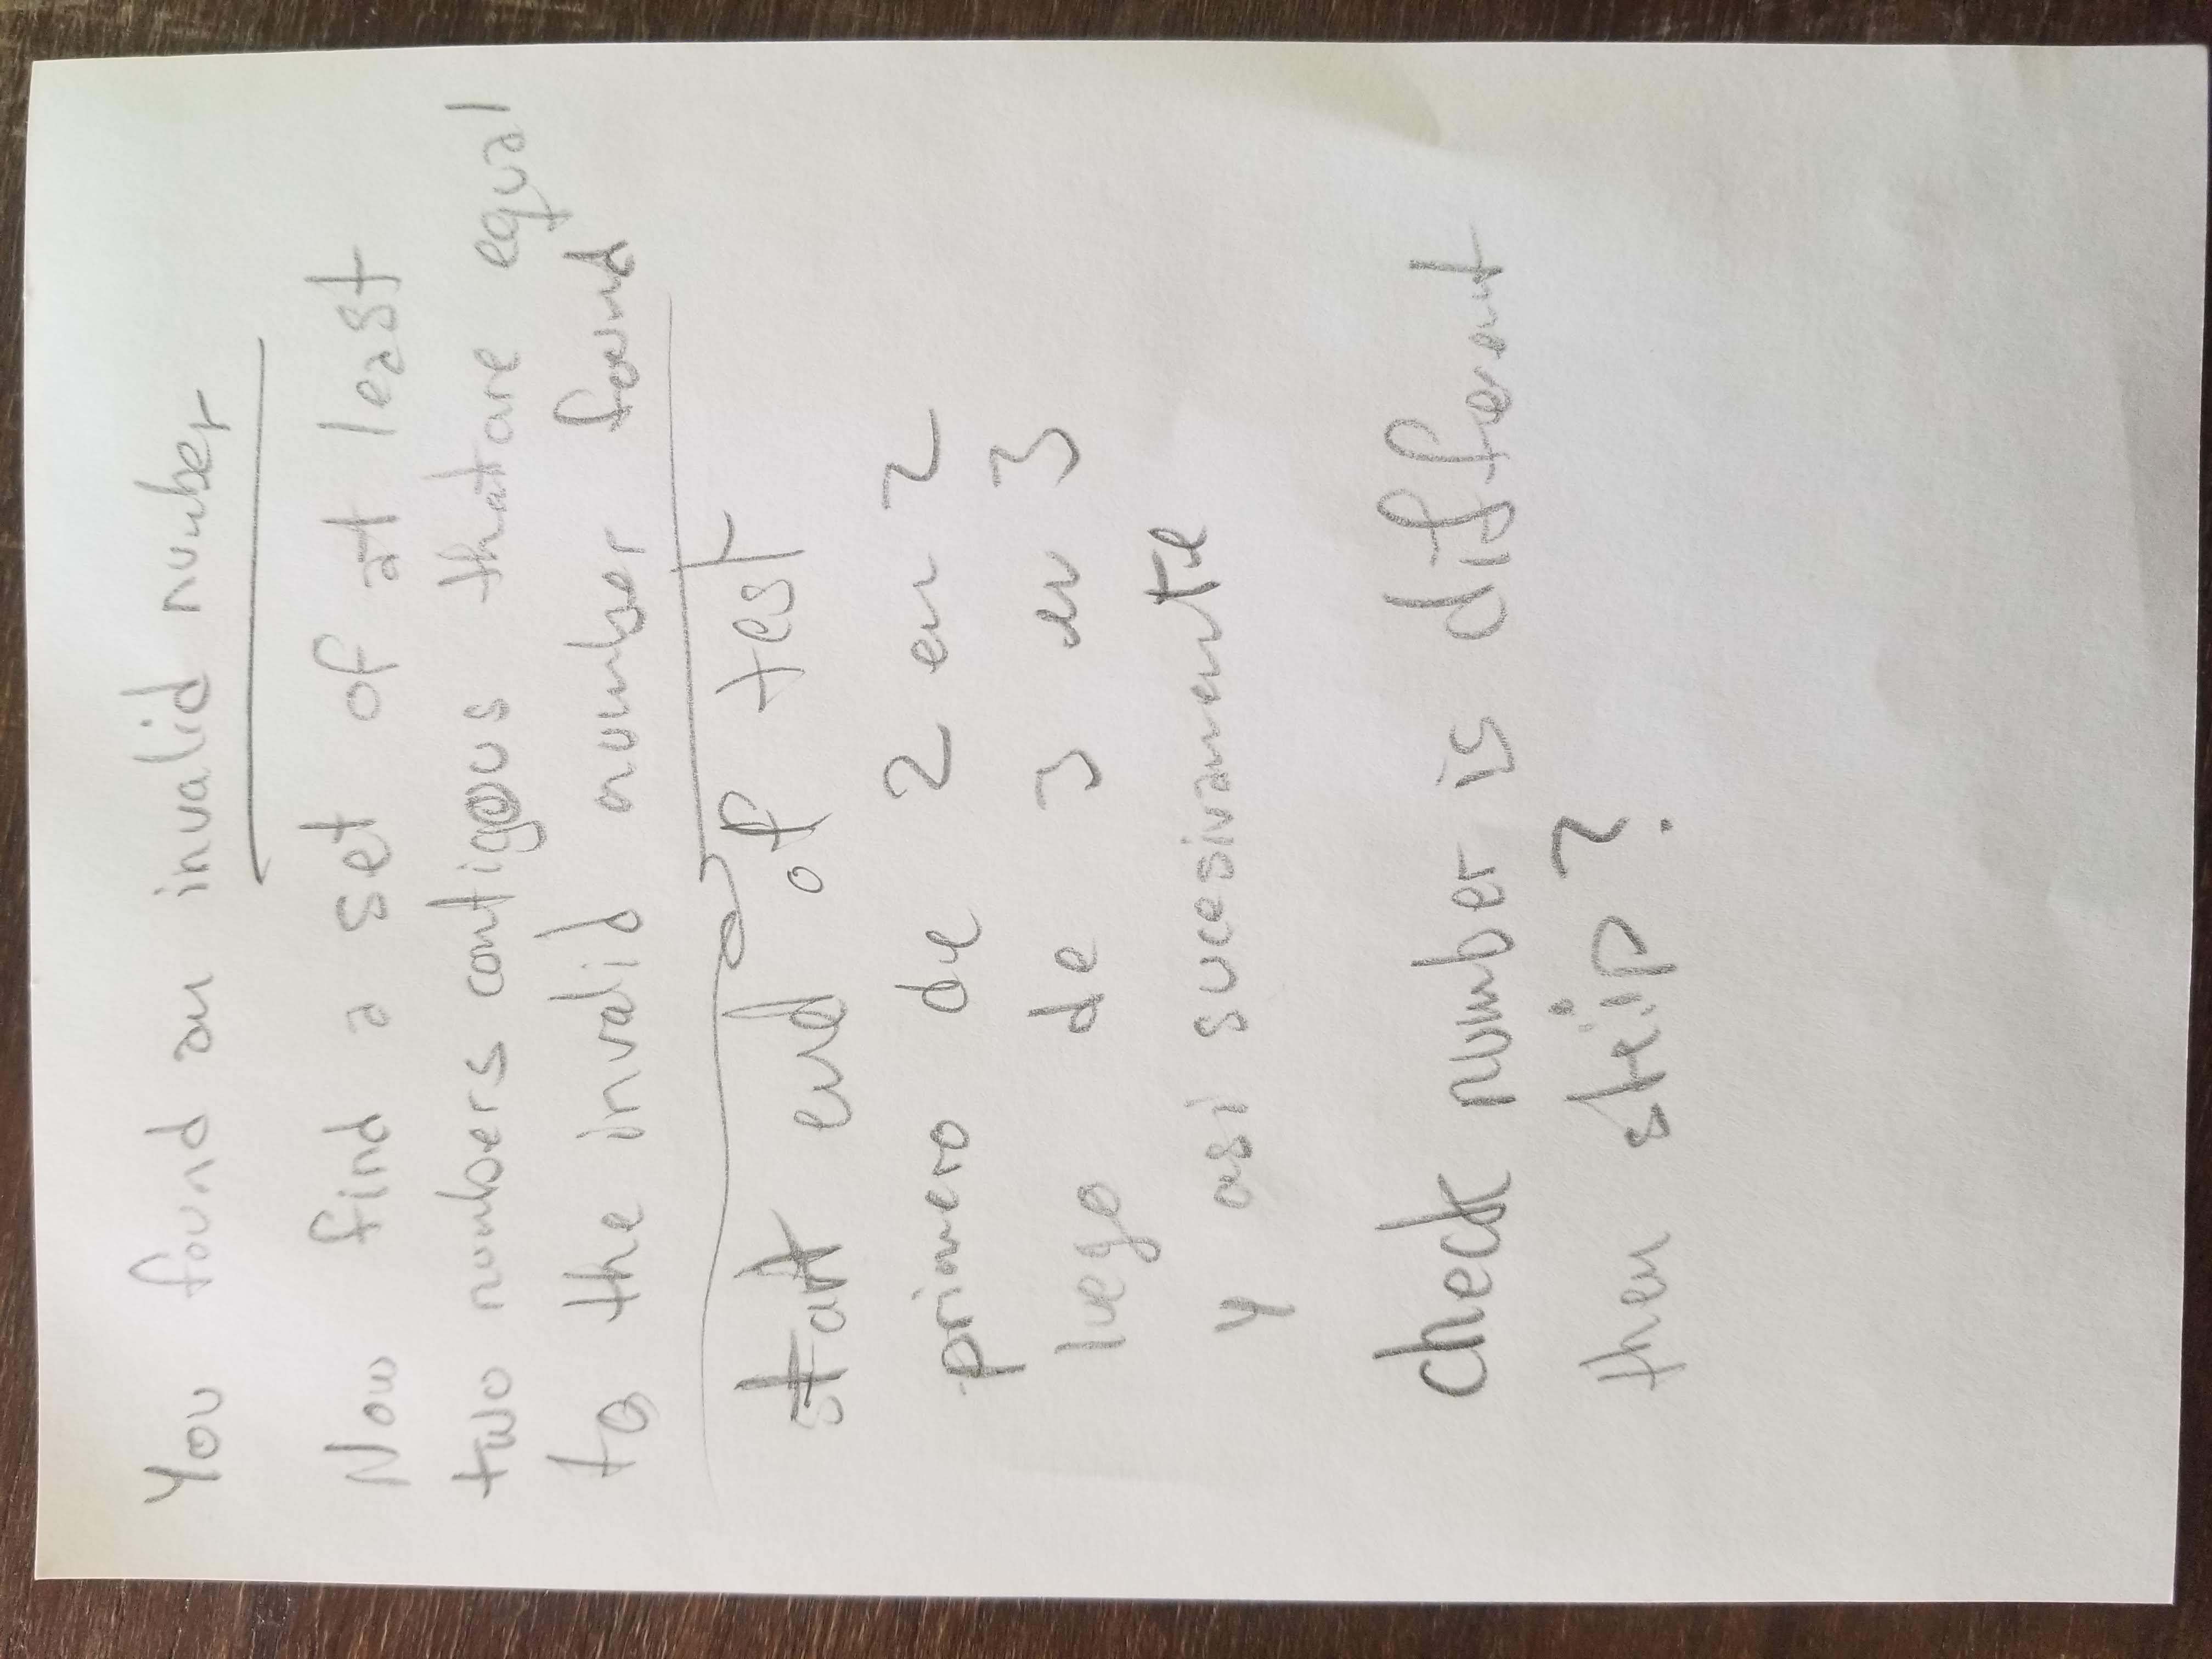 You found an invalid number
Now find a set of at least
two numbers contigous that are equal
to the invalid number found
start end of test
primero de 2 en 2
luego de 3 en 3
y asi sucesivamente
check number is different
then ?